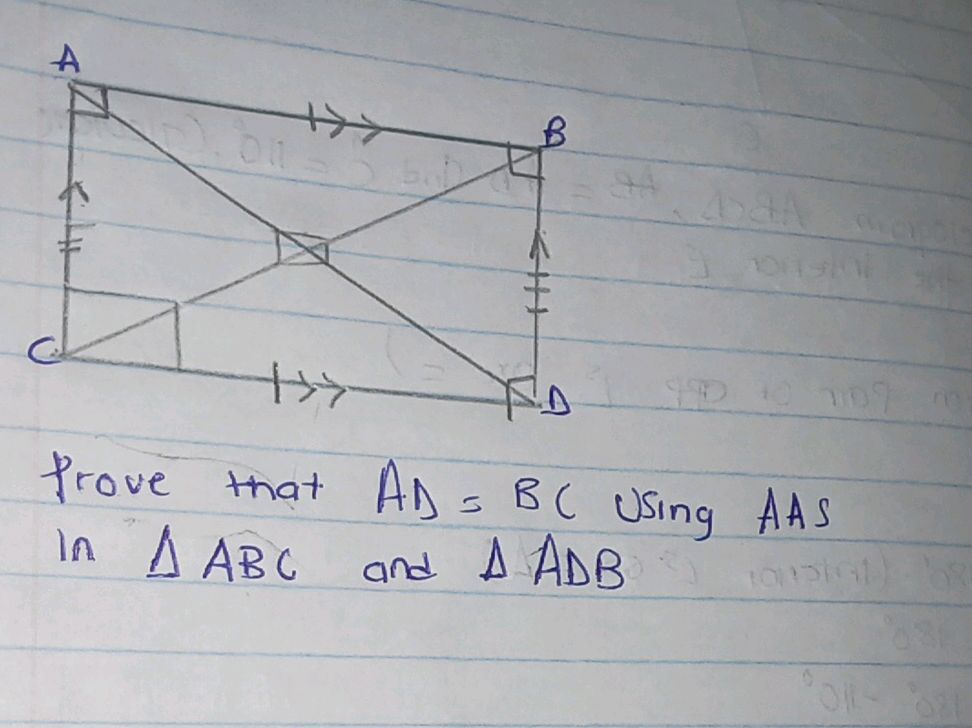 A
B
C
D
Prove that AD = BC using AAS
in Δ ABC and Δ ADB